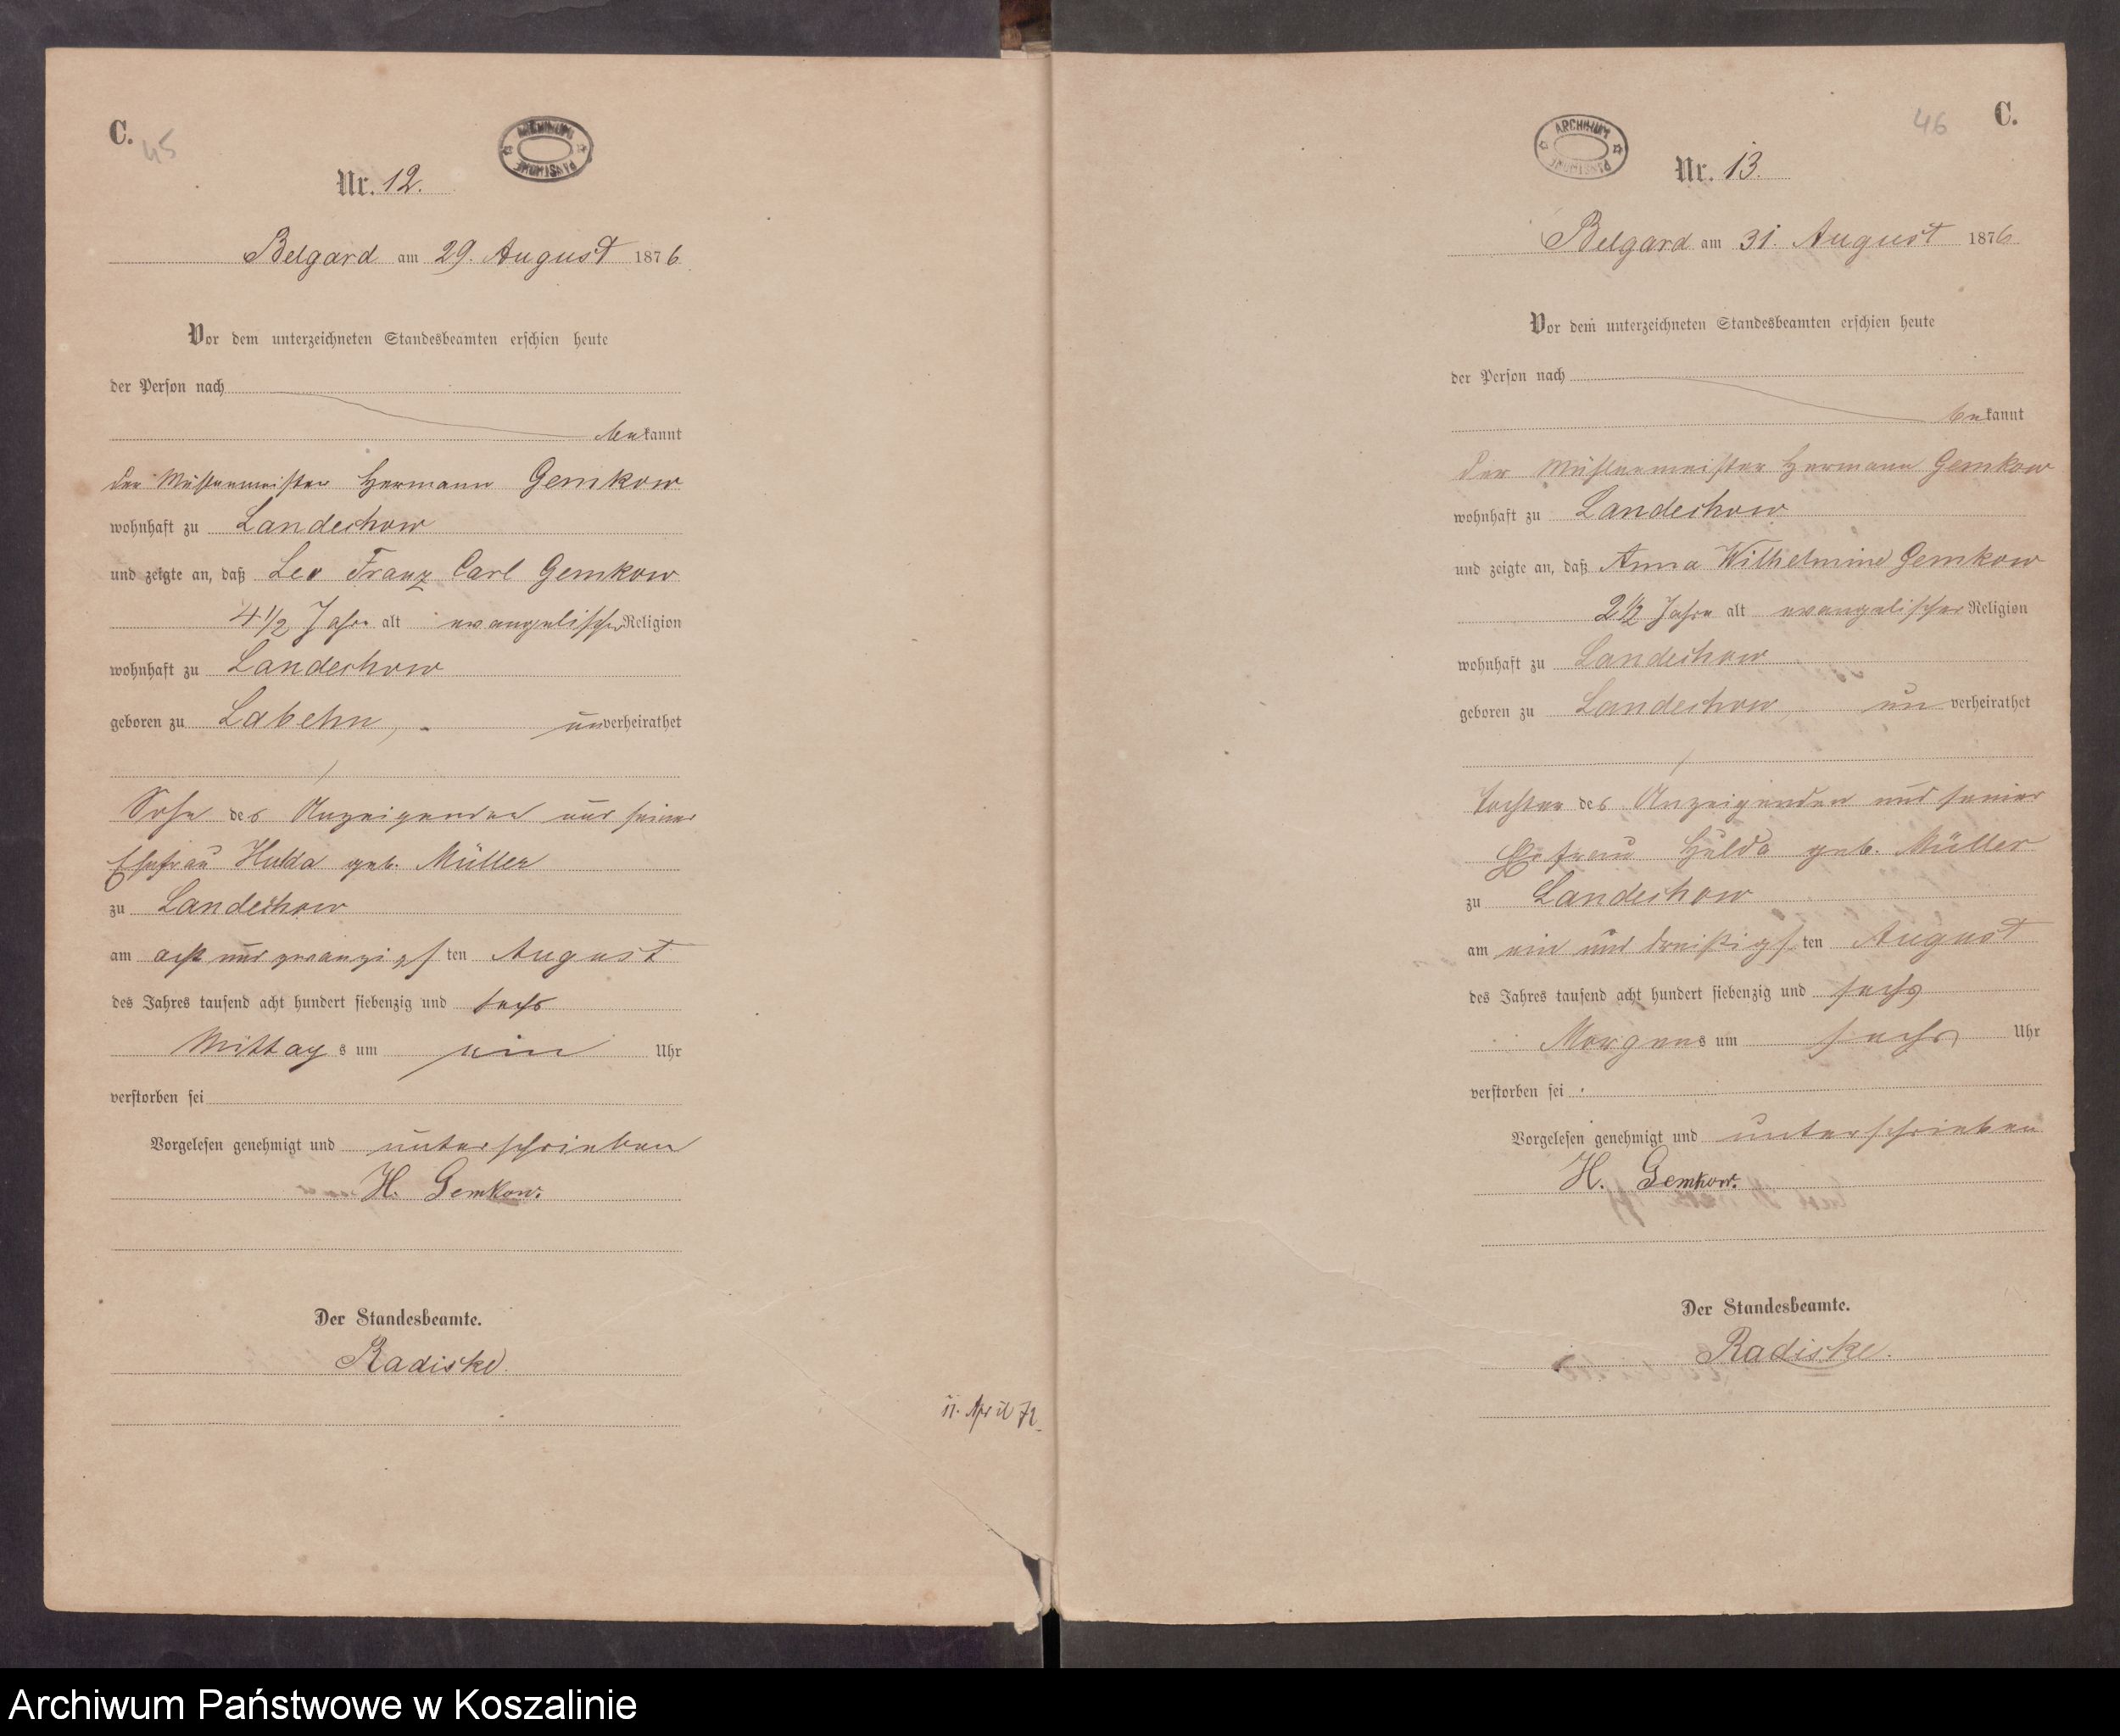 C.
45
ARCHIWUM PAŃSTWOWE
Nr. 12.
Belgard am 29. August 1876
Vor dem unterzeichneten Standesbeamten erschien heute
der Person nach
bekannt
der Mühlenmeister Hermann Gemkow
wohnhaft zu Landechow
und zeigte an, daß Leo Franz Carl Gemkow
4 1/2 Jahre alt evangelischer Religion
wohnhaft zu Landechow
geboren zu Labehn, unverheirathet
Sohn des Anzeigenden und seiner
Ehefrau Hulda geb. Müller
zu Landechow
am acht und zwanzigsten August
des Jahres tausend acht hundert siebenzig und sechs
Mittags um ein Uhr
verstorben sei
Vorgelesen genehmigt und unterschrieben
H. Gemkow.
Der Standesbeamte.
Radiske.
11. April 72
46
C.
ARCHIWUM PAŃSTWOWE
Nr. 13.
Belgard am 31. August 1876
Vor dem unterzeichneten Standesbeamten erschien heute
der Person nach
bekannt
Der Mühlenmeister Hermann Gemkow
wohnhaft zu Landechow
und zeigte an, daß Anna Wilhelmine Gemkow
2 1/2 Jahre alt evangelischer Religion
wohnhaft zu Landechow
geboren zu Landechow, unverheirathet
Tochter des Anzeigenden und seiner
Ehefrau Hulda geb. Müller
zu Landechow
am ein und dreißigsten August
des Jahres tausend acht hundert siebenzig und sechs
Morgens um sechs Uhr
verstorben sei
Vorgelesen genehmigt und unterschrieben
H. Gemkow.
Der Standesbeamte.
Radiske.
Archiwum Państwowe w Koszalinie